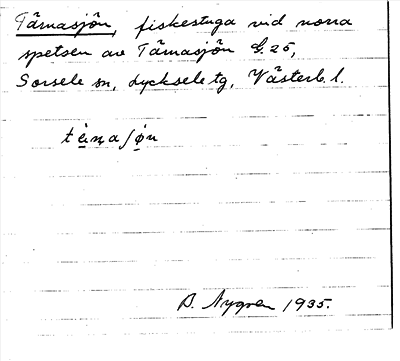 Tärnasjön, fiskestuga vid norra
spetsen av Tärnasjön G. 25,
Sorsele sn, Lycksele tg, Västerb. l.
B. Nygren 1935.